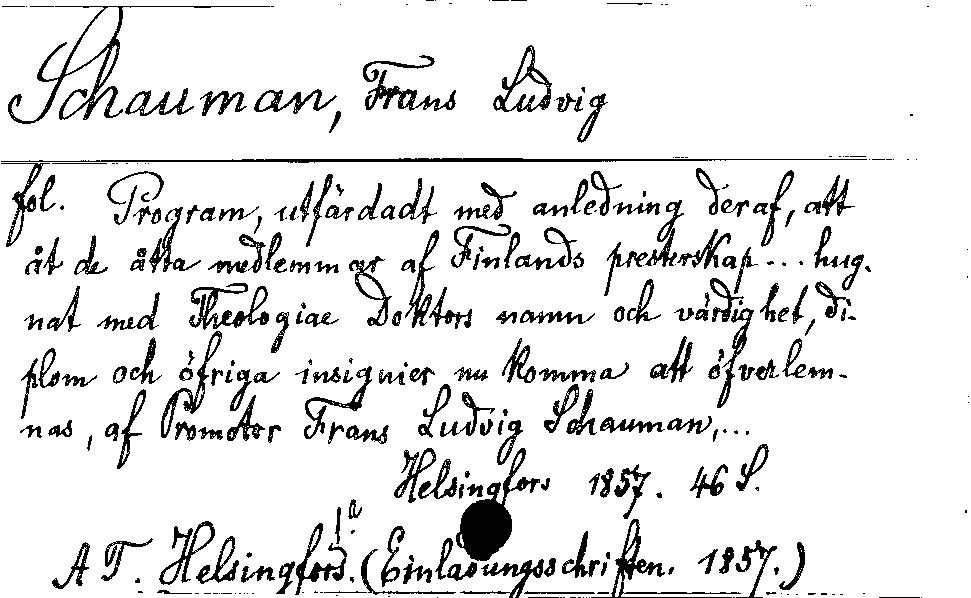 Schauman, Frans Ludvig
fol. Program, utfärdadt med anledning deraf, att
åt de åtta medlemmar af Finlands presterskap... hug.
nat med Theologiae Doktors namn och värdighet, di-
plom och öfriga insignier nu komma att öfverlem-
nas, af Promotor Frans Ludvig Schauman,...
Helsingfors 1857. 46 S.
A T. Helsingfors. (Einladungsschriften. 1857.)